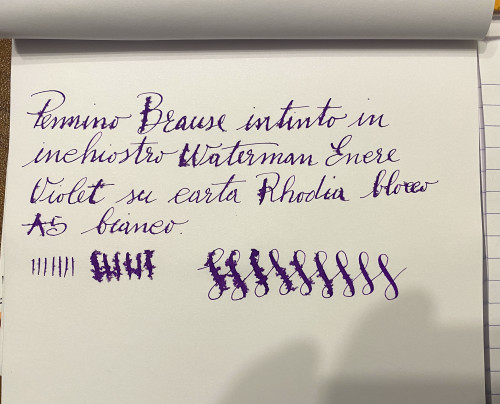 Pennino Brause intinto in
inchiostro Waterman Encre
Violet su carta Rhodia blocco
A5 bianco.